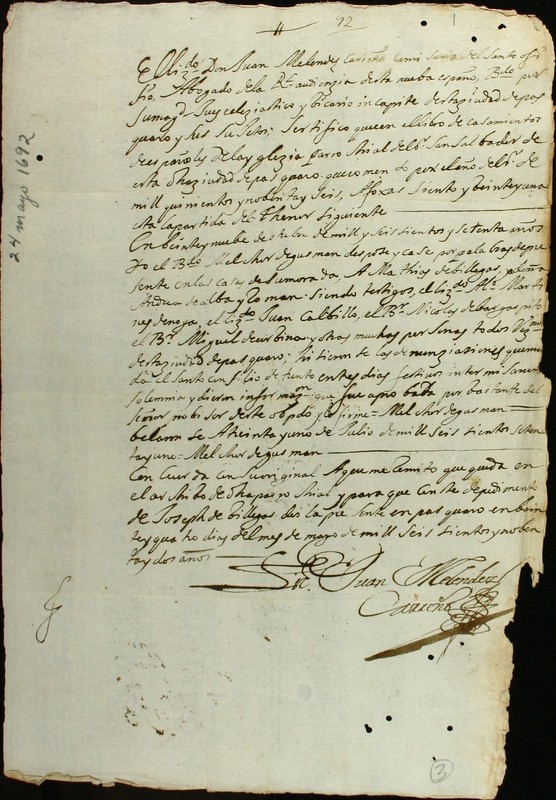 92
1
24 mayo 1692
El liz.do Don Juan Melendes Carreño Comi Sario del Santo ofi
sio, Abogado dela R.l audienzia desta nueba espana, B.do por
Su mag.d Jues eclesiastico y bicario in capite destaziudad de pas
quaro y Ju Sertifico que en el libro de casamientos
de españoles dela yglezia Parro chial del S. San Salbador de
esta d ha ziudad de pasquaro que comensó por el año del S. de
mill quinientos y nobenta y seis, A foxas siento y beinte y una
esta la partida del thenor siguiente
En beinte y nuebe de de mill y seis sientos y setenta años
yo el B.do Melchor de gusman despose y case por palabras de pre
sente en las casas de su morada, A Mathias de billegas, y a
Andrea de alba y Siendo testigos, el liz.do Al.o Marti
nes denoga, el liz.do Juan Calbillo, el B.r Nicolas de bargas,
el B.r Miguel de urbina y otras muchas per sonas todos Vezinos
desta ziudad de pasquaro; hisieron se las denunziaziones que man
da el santo con silio de trento en tres dias festibos inter misarum
solemnia y dieron informaz.on que fue apro bada por bastante del
señor probisor deste obpdo y lo firme = Melchor de gusman
belaron se A treinta y uno de Julio de mill seis sientos seten
ta y uno = Melchor de gusman
Con Cuerda con su original A que me remito que queda en
el archibo de d ha parro chial y para que conste de pedimento
de Joseph de billegas, di la pre sente en pasquaro en bein
te y qua tro dias del mes de mayo de mill Seis sientos y noben
ta y dos años
Liz. Juan Melendez
Carreño
3